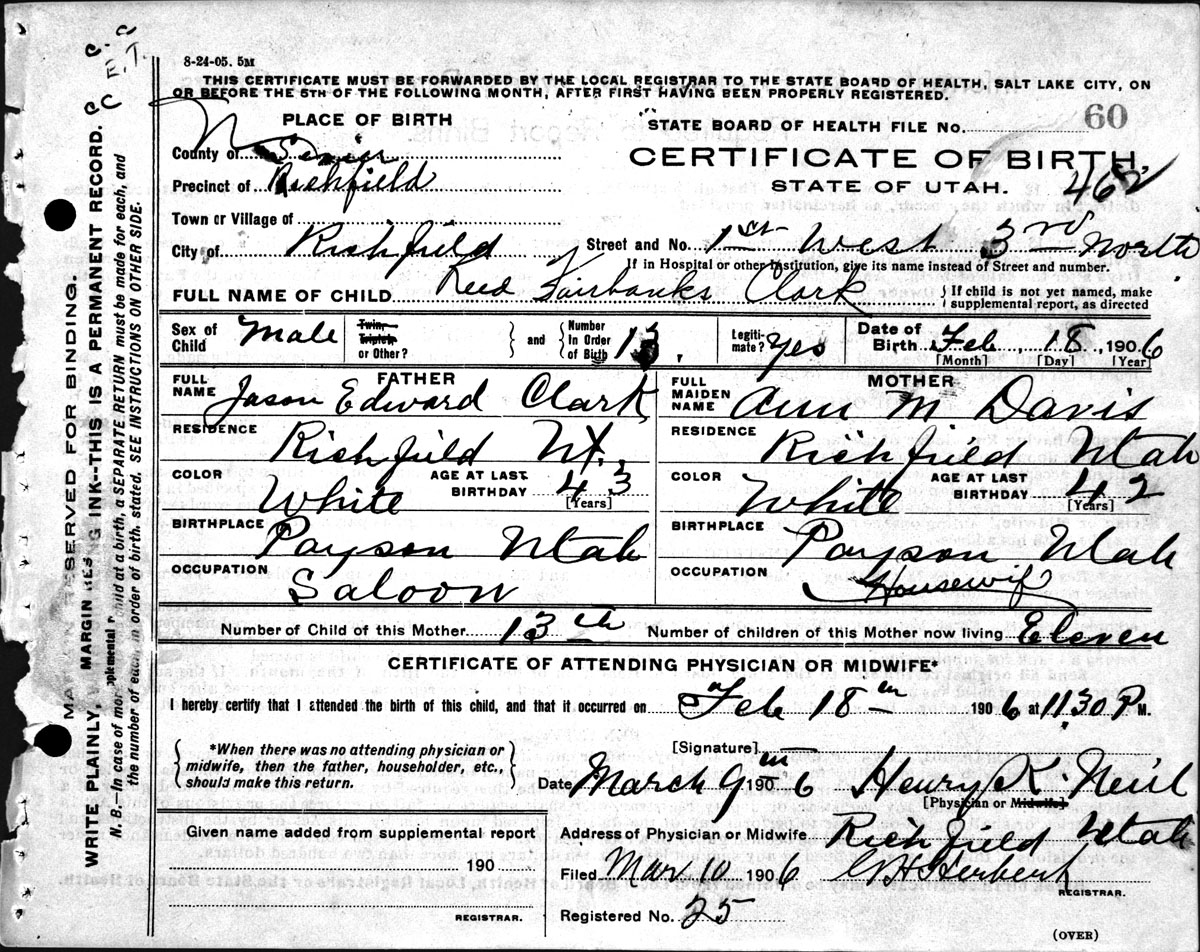 8-24-05. 5M
THIS CERTIFICATE MUST BE FORWARDED BY THE LOCAL REGISTRAR TO THE STATE BOARD OF HEALTH, SALT LAKE CITY, ON
OR BEFORE THE 5TH OF THE FOLLOWING MONTH, AFTER FIRST HAVING BEEN PROPERLY REGISTERED.
PLACE OF BIRTH
County of Sevier
Precinct of Richfield
Town or Village of
City of Richfield
STATE BOARD OF HEALTH FILE No. 60
CERTIFICATE OF BIRTH.
STATE OF UTAH. 462
Street and No. 1st West 3rd North
If in Hospital or other Institution, give its name instead of Street and number.
FULL NAME OF CHILD Reed Fairbanks Clark { If child is not yet named, make supplemental report, as directed
Sex of Child Male Twin, Triplet, or Other? } and { Number In Order of Birth 13, Legitimate? Yes Date of Birth Feb, 18, 1906
[Month] [Day] [Year]
FATHER
FULL NAME Jason Edward Clark
RESIDENCE Richfield Ut.
COLOR White AGE AT LAST BIRTHDAY 43 [Years]
BIRTHPLACE Payson Utah
OCCUPATION Saloon
MOTHER
FULL MAIDEN NAME Ann M Davis
RESIDENCE Richfield Utah
COLOR White AGE AT LAST BIRTHDAY 42 [Years]
BIRTHPLACE Payson Utah
OCCUPATION Housewif
Number of Child of this Mother 13th Number of children of this Mother now living Eleven
CERTIFICATE OF ATTENDING PHYSICIAN OR MIDWIFE*
I hereby certify that I attended the birth of this child, and that it occurred on Feb 18th 1906 at 11.30 P M.
{ *When there was no attending physician or midwife, then the father, householder, etc., should make this return. }
[Signature]
Date March 9th 1906 Henry K. Neil
[Physician or Midwife]
Given name added from supplemental report
190
REGISTRAR.
Address of Physician or Midwife Richfield Utah
Filed Mar 10 1906 Herbert
REGISTRAR.
Registered No. 25
(OVER)
RESERVED FOR BINDING.
WRITE PLAINLY, INK--THIS IS A PERMANENT RECORD.
N. B.—In case of child at a birth, a SEPARATE RETURN must be made for each, and
the number of each in order of birth, stated. SEE INSTRUCTIONS ON OTHER SIDE.